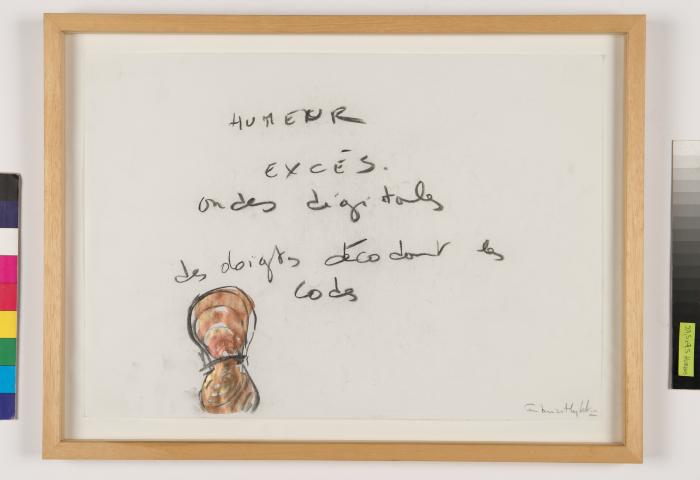 HUMEUR
EXCÈS.
ondes digitales
des doigts décodant les
codes